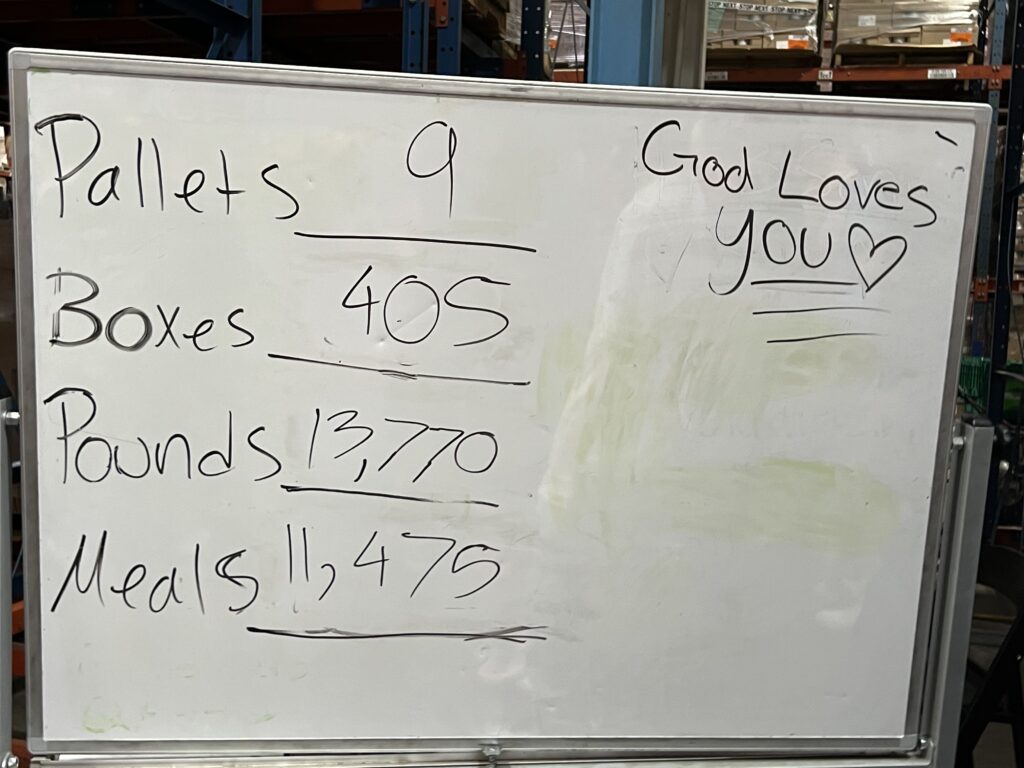 STOP NEXT STOP NEXT STOP NEXT
Pallets 9
Boxes 405
Pounds 13,770
Meals 11,475
God Loves
you ♡